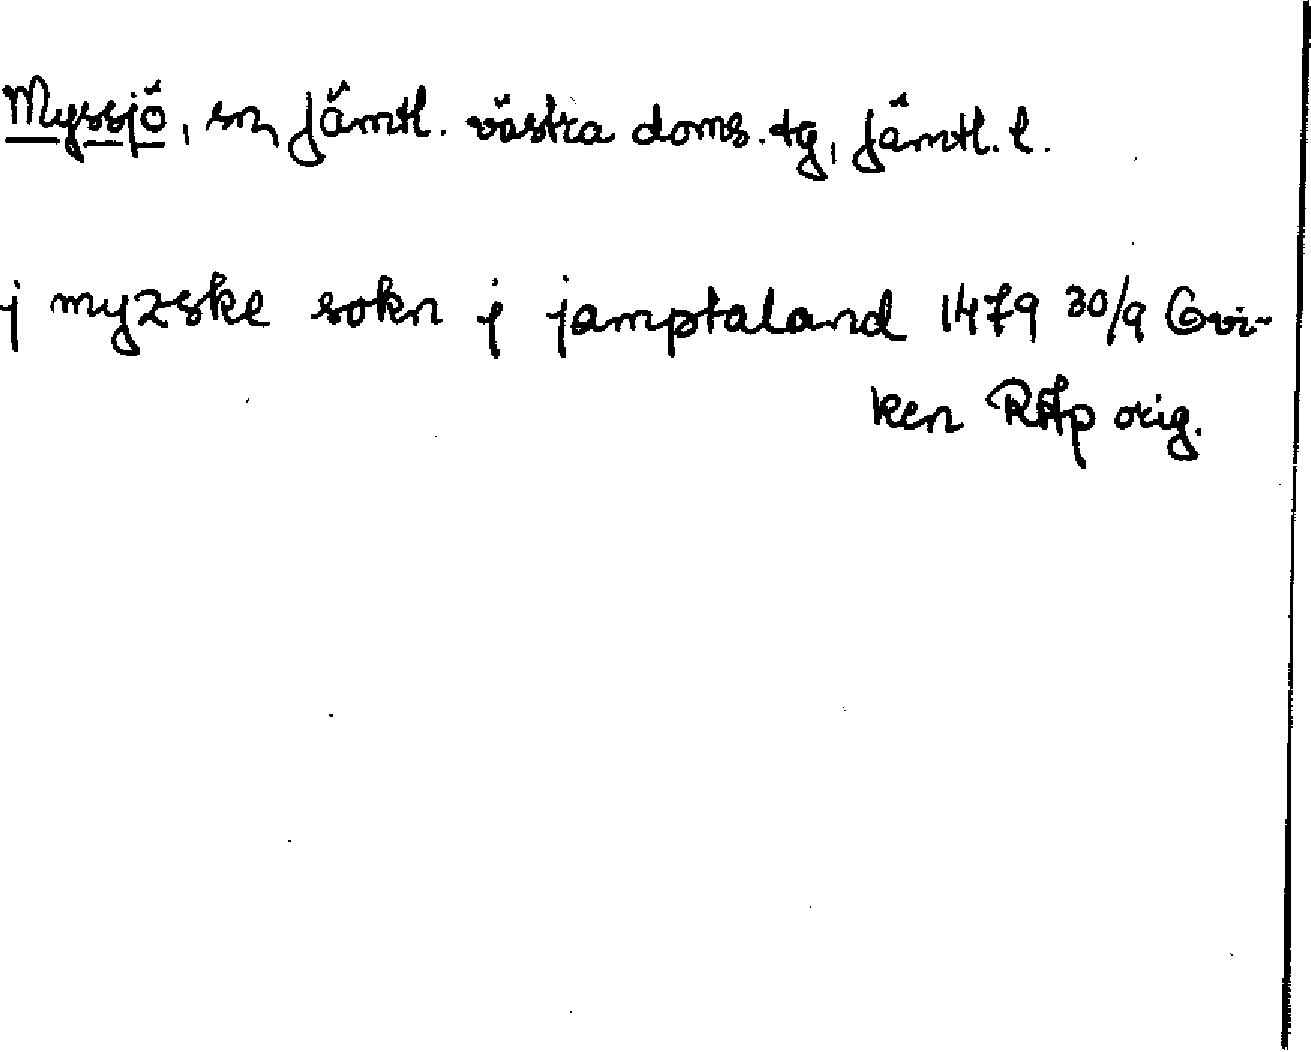 Myssjö, sn, Jämtl. västra doms. tg, Jämtl. l.
j myzske sokn j jamptaland 1479 30/9 Gvi-
ken RAp orig.